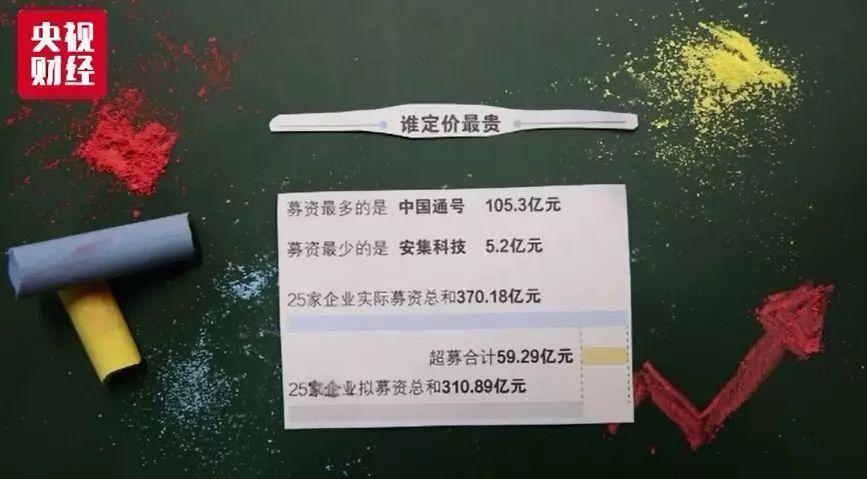 央视
财经
谁定价最贵
募资最多的是 中国通号 105.3亿元
募资最少的是 安集科技 5.2亿元
25家企业实际募资总和370.18亿元
超募合计59.29亿元
25家企业拟募资总和310.89亿元